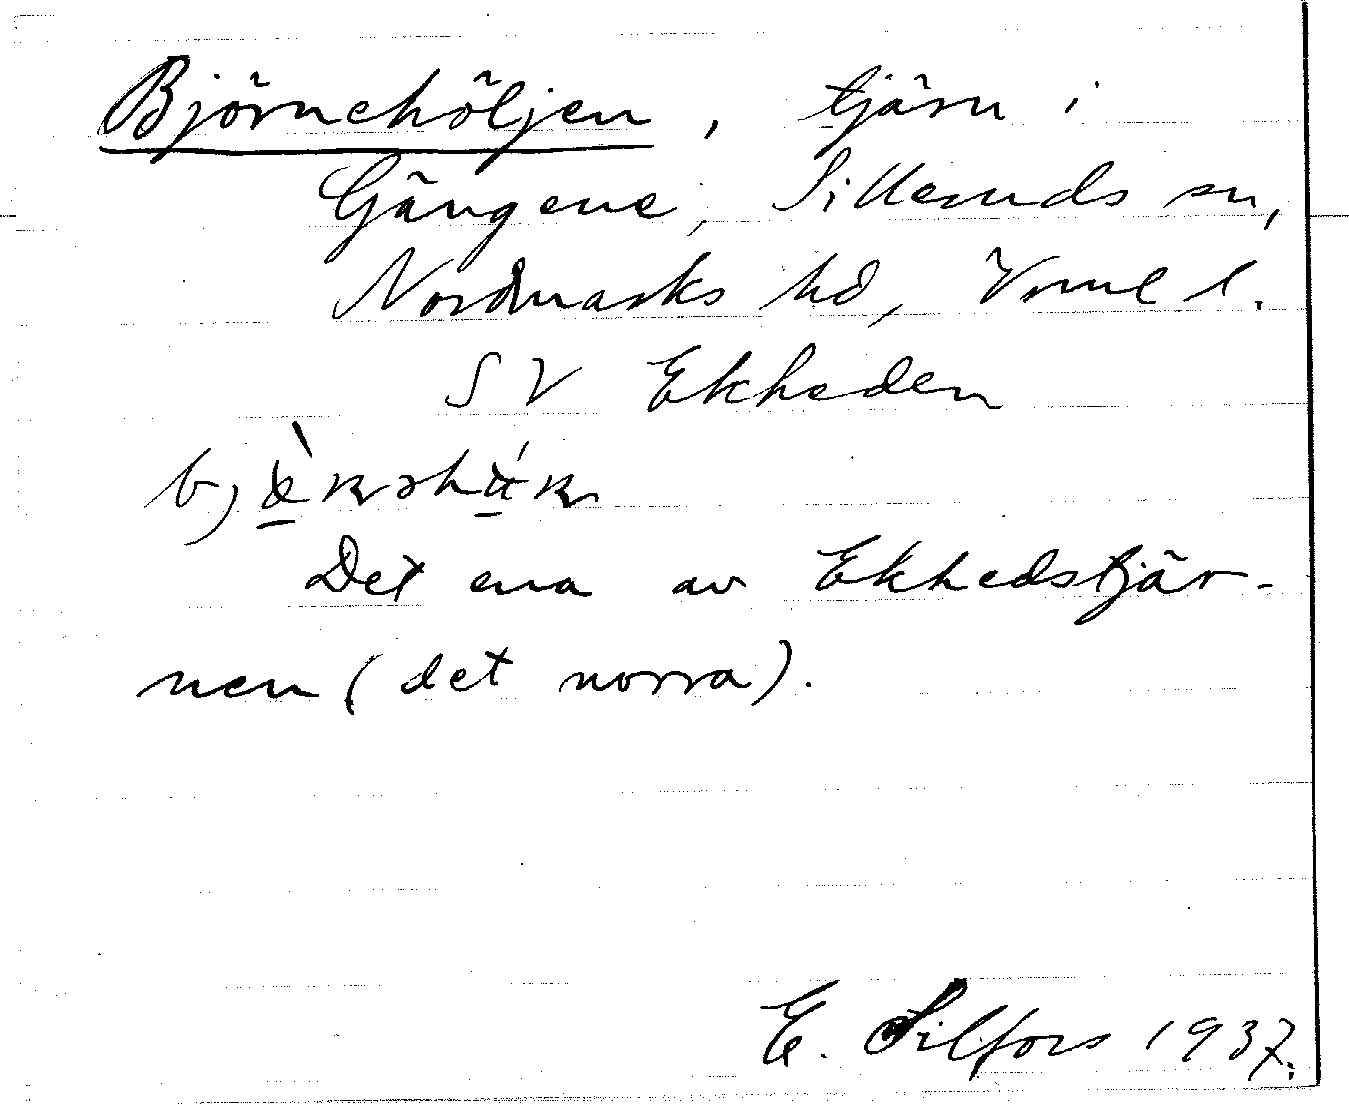 Björnehöljen, tjärn i
Gängene, Silleruds sn,
Nordmarks hd, Vrml l.
SV Ekheden
Det ena av Ekhedstjär-
nen (det norra).
E. Silfors 1937.